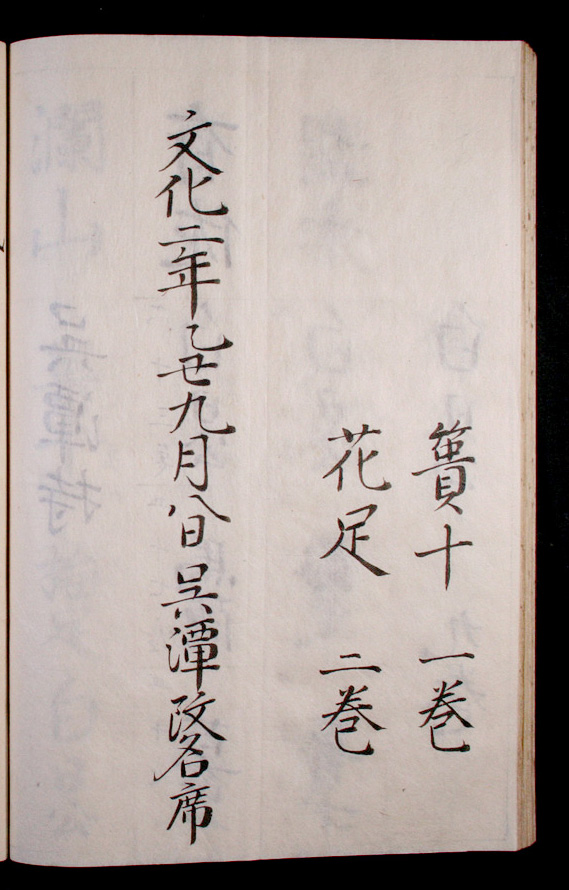 簣十 一巻
花足 二巻
文化二年乙丑九月八日呉潭改名席